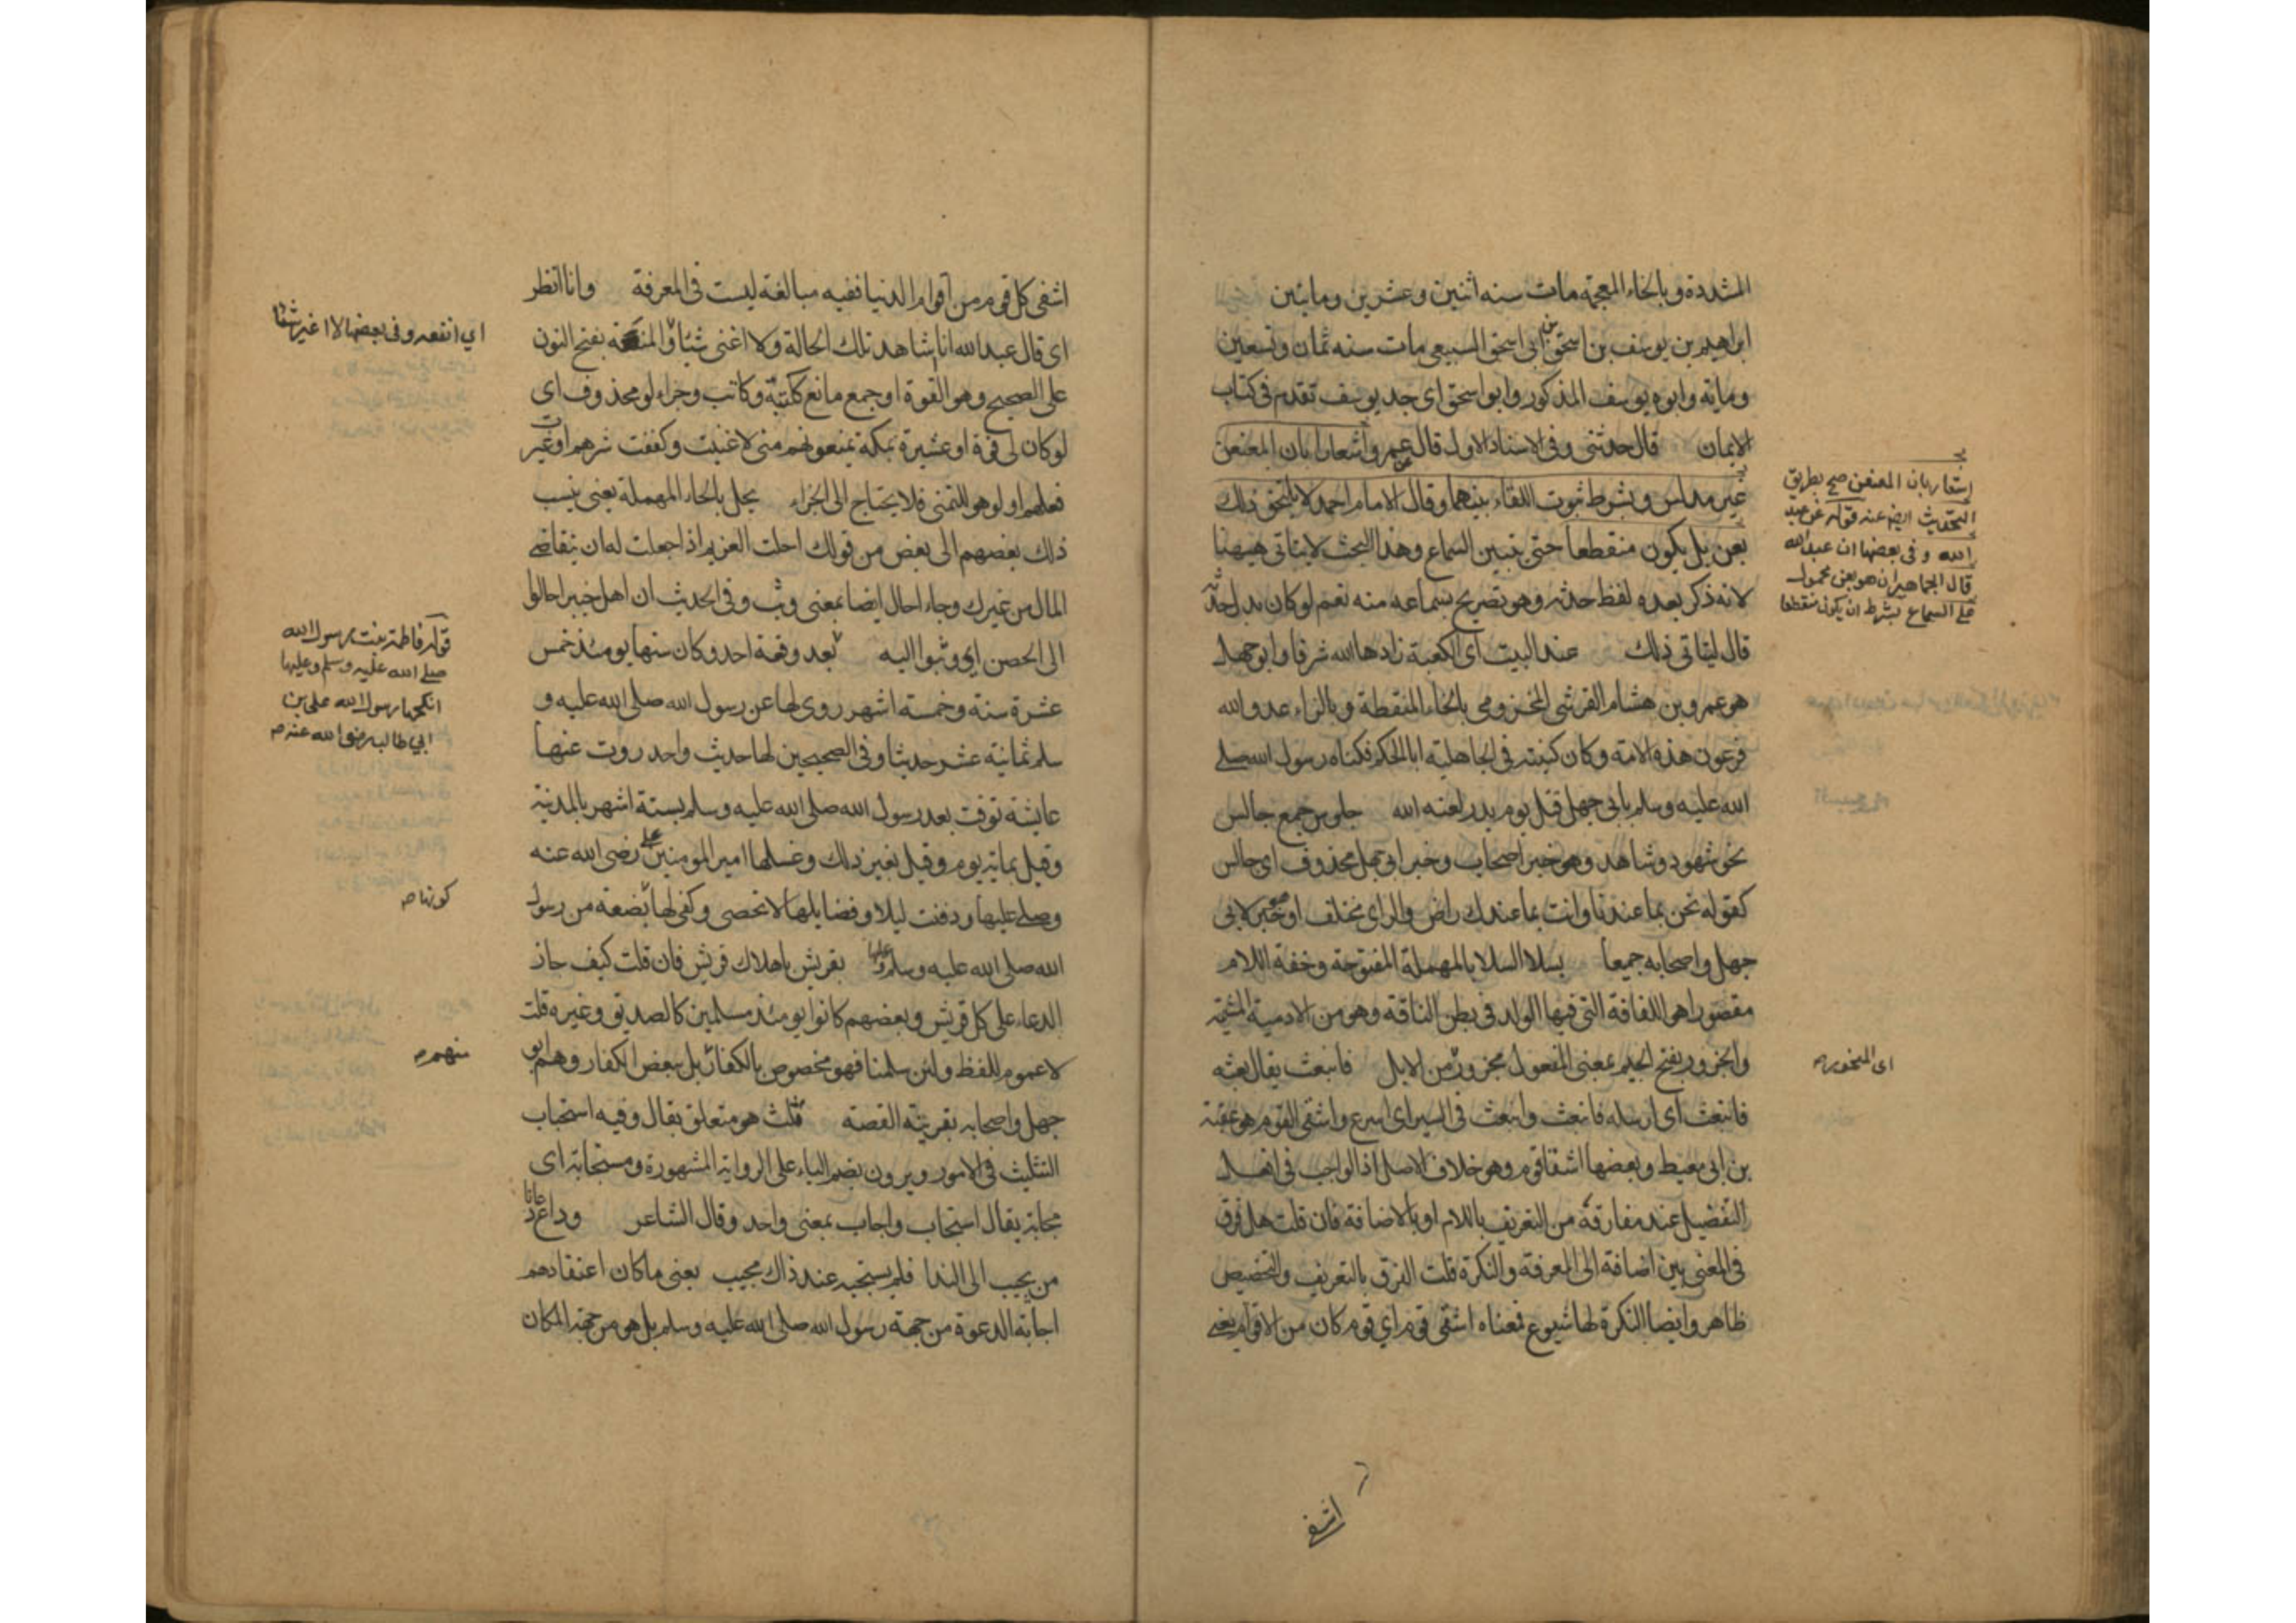 المشددة وبالخاء المعجمة مات سنه اثنين وعشرين ومايتين
ابراهيم بن يوسف بن اسحق بن ابى اسحق السبيعى مات سنه ثمان وتسعين
ومايه وابوه يوسف المذكور وابو اسحق اى جد يوسف تقدم فى كتاب
الايمان قال حدثنى وفى الاسناد الاول قال عمرو اشعارا بان المعنعن
غير مدلس وبشرط ثبوت اللقاء بينهما وقال الامام احمد لا يلتحق ذلك
بعن بل يكون منقطعا حتى يتبين السماع وهذا البحث لا يتاتى هيهنا
لانه ذكر بعده لفظ حدثه وهو تصريح بسماعه منه نعم لو كان بدل حدثه
قال ليتاتى ذلك عند البيت اى الكعبة زادها الله شرفا وابو جهل
هو عمرو بن هشام القرشى المخزومى بالخاء المنقطة وبالزاء عدو الله
فرعون هذه الامة وكان كنيته فى الجاهلية ابا الحكم فكناه رسول الله صلى
الله عليه وسلم بابى جهل قتل يوم بدر لعنه الله جلوس جمع جالس
نحو شهود وشاهد وهو خبر اصحاب وخبر ابى جهل محذوف اى جالس
كقوله نحن بما عندنا وانت بما عندك راض والراى مختلف او خبر لابى
جهل واصحابه جميعا بسلا السلا بالمهملة المفتوحة وخفة اللام
مقصورا هو اللفافة التى فيها الولد فى بطن الناقة وهو من الادمية المشيمة
والجزور بفتح الجيم بمعنى المفعول مجزور من الابل فانبعث يقال بعثه
فانبعث اى ارسله فانبعث وانبعث فى السير اى اسرع واشقى القوم هو عقبة
بن ابى معيط وبعضها اشقا قوم وهو خلاف الاصل اذ الواجب فى افعل
التفضيل عند مفارقة من التعريف باللام او بالاضافة فان قلت هل فرق
فى المعنى بين اضافة الى المعرفة والنكرة قلت الفرق بالتعريف والتخصيص
ظاهر وايضا النكرة لها شيوع فمعناه اشقى قوم اي قوم كان من الاقوام يعنى
استعار بان المعنعن صح بطريق
التحديث ايضا عنه قوله عن عبد
الله وفى بعضها ان عبد الله
قال الجماهير ان هو بعن محمول
على السماع بشرط ان يكون منقطعا
اى المنحور
اشقى
اشقى كل قوم من اقوام الدنيا ففيه مبالغة ليست فى المعرفة وانا انظر
اى قال عبد الله انا شاهد تلك الحالة ولا اغنى شيئا والمنعة بفتح النون
على الصحيح وهو القوة او جمع مانع ككتبة وكاتب وجزاء لو محذوف اى
لو كان لى قوة او عشيرة بمكة يمنعونهم منى لاغنيت وكففت شرهم او غيرت
فعلهم او لو هو للتمنى فلا يحتاج الى الجزاء يحيل بالحاء المهملة يعنى ينسب
ذلك بعضهم الى بعض من قولك احلت الغريم اذا جعلت له ان يتقاضى
المال من غيرك وجاء احال ايضا بمعنى وثب وفى الحديث ان اهل خيبر احالوا
الى الحصن اي وثبوا اليه بعد وقعة احد وكان سنها يومئذ خمس
عشرة سنة وخمسة اشهر روى لها عن رسول الله صلى الله عليه و
سلم ثمانية عشر حديثا وفى الصحيحين لها حديث واحد روت عنها
عايشة توفت بعد رسول الله صلى الله عليه وسلم بستة اشهر بالمدينة
وقيل بماية يوم وقيل بغير ذلك وغسلها امير المومنين على رضى الله عنه
وصلى عليها ودفنت ليلا وفضايلها لا تحصى وكفى لها بضعة من رسول
الله صلى الله عليه وسلم وعليها بقريش باهلاك قريش فان قلت كيف جاز
الدعاء على كل قريش وبعضهم كانوا يومئذ مسلمين كالصديق وغيره قلت
لا عموم للفظ ولئن سلمنا فهو مخصوص بالكفار بل ببعض الكفار وهم ابو
جهل واصحابه بقرينة القصة ثلث هو متعلق بقال وفيه استحباب
التثليث فى الامور ويرون بضم الياء على الرواية المشهورة ومستجابة اى
مجابة يقال استجاب واجاب بمعنى واحد وقال الشاعر وداع دعانا
من يجيب الى الندا فلم يستجبه عند ذاك مجيب يعنى ما كان اعتقادهم
اجابة الدعوة من جهة رسول الله صلى الله عليه وسلم بل هو من جهة المكان
اي انفعه وفى بعضها لا اغير شيئا
قوله فاطمة بنت رسول الله
صلى الله عليه وسلم وعليها
انكحها رسول الله على بن
ابي طالب رضى الله عنه
كونها
منهم